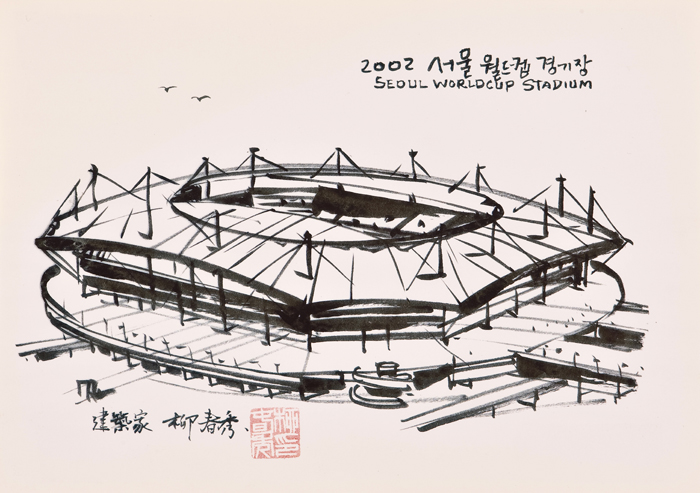 2002 서울 월드컵 경기장
SEOUL WORLDCUP STADIUM
建築家 柳春秀.